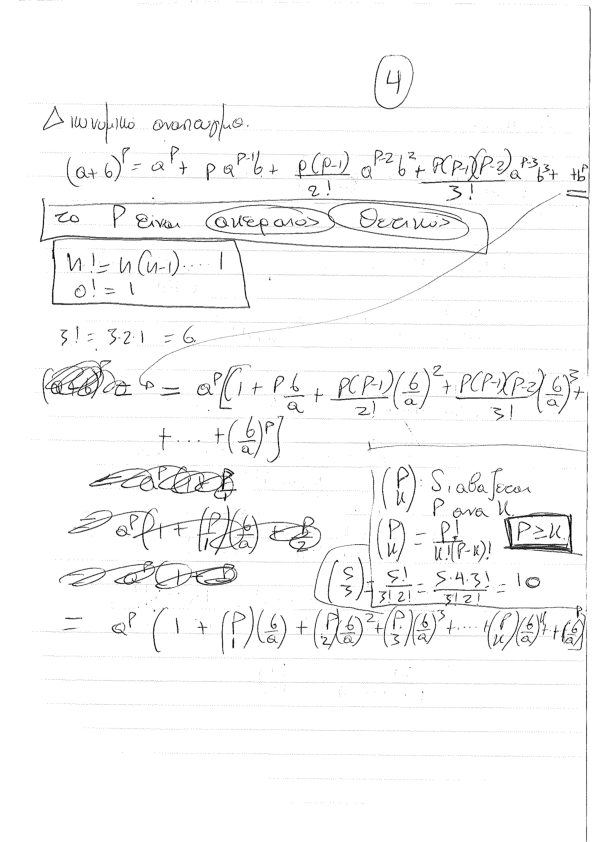 4
Διωνυμικό αναπτυγμα.
(a+b)^P = a^P + P a^{P-1} b + P(P-1)/2! a^{P-2} b^2 + P(P-1)(P-2)/3! a^{P-3} b^3 + +b^P
το P ειναι ακεραιος θετικος
n! = n(n-1)....1
0! = 1
3! = 3·2·1 = 6
= a^P [1 + P b/a + P(P-1)/2! (b/a)^2 + P(P-1)(P-2)/3! (b/a)^3 +
+ ... + (b/a)^P]
(P κ): διαβαζεται
P ανα κ
(P κ) = P!/κ!(P-κ)! P≥κ
(5 3) = 5!/3!2! = 5·4·3!/3!2! = 10
= a^P (1 + (P 1)(b/a) + (P 2)(b/a)^2 + (P 3)(b/a)^3 + .... + (P κ)(b/a)^κ + + (b/a)^P